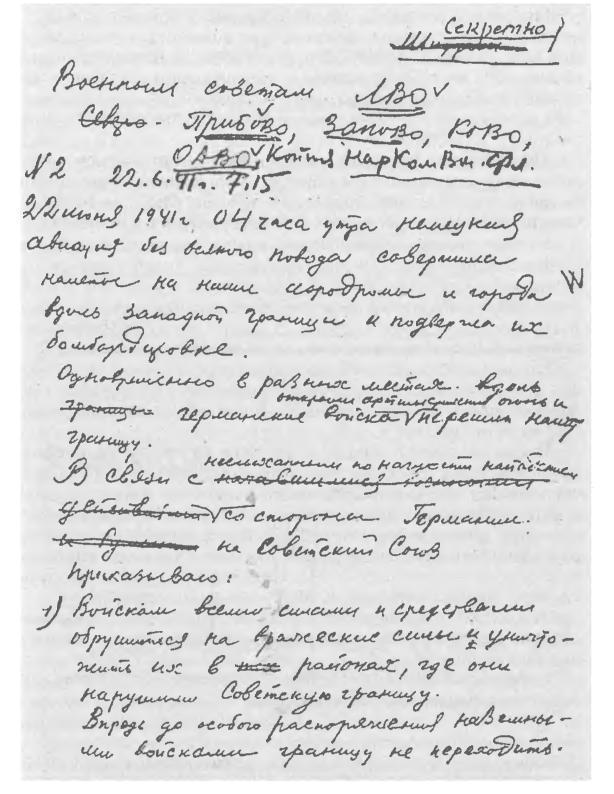 Секретно
Шифром
Военным советам ЛВО
Севзо - Прибово, Запово, Ково,
ОдВО, Копия НарКомВм.Фл.
N 2 22.6.41г. 7.15
22 июня 1941г. 04 часа утра немецкая
авиация без всякого повода совершила
налеты на наши аэродромы и города
вдоль западной границы и подвергла их
бомбардировке.
Одновременно в разных местах вдоль
открыли артиллерийский огонь и
границы германские войска перешли нашу
границу.
неслыханным по наглости нападением
В связи с
со стороны Германии
на Советский Союз
Приказываю:
1) Войскам всеми силами и средствами
обрушиться на вражеские силы и уничто-
жить их в тех районах, где они
нарушили Советскую границу.
Впредь до особого распоряжения наземны-
ми войсками границу не переходить.